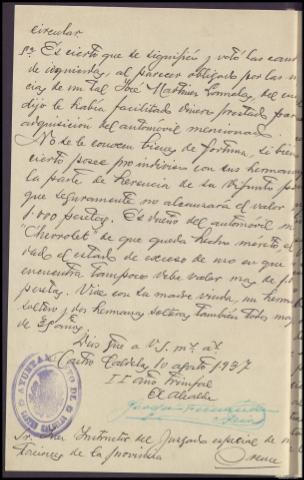 circular
Es cierto que se significó y votó las
de izquierdas, al parecer obligado por las
cias de un tal José Martínez, del
dijo le había facilitado dinero prestado para
adquisición del automóvil mencionado.
No se le conocen bienes de fortuna, si bien
cierto posee proindiviso con sus hermanos
la parte de herencia de su difunto pa
que seguramente no alcanzará el valor
1.000 pesetas. Es dueño del automóvil m
"Chevrolet" de que queda hecho mérito, el
dado el estado de exceso de uso en que
encuentra tampoco debe valer mas de
pesetas. Vive con su madre viuda, un herma
soltero y dos hermanas solteras también todos may
de
Dios gue a V.S. ms. as.
Castro Caldelas 10 agosto 1937
II año Triunfal
El Alcalde
AYUNTAMIENTO DE
Sr. Juez Instructor del Juzgado especial de
de la provincia
Orense